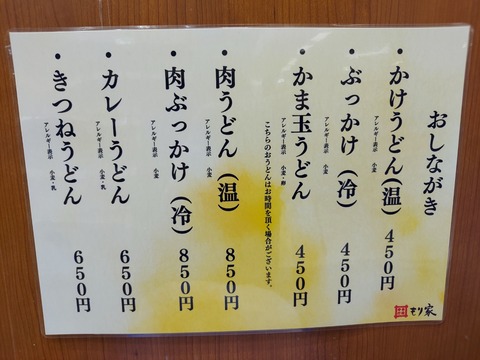 おしながき
・かけうどん（温） 450円
アレルギー表示 小麦
・ぶっかけ（冷） 450円
アレルギー表示 小麦
・かま玉うどん 450円
アレルギー表示 小麦・卵
こちらのおうどんはお時間を頂く場合がございます。
・肉うどん（温） 850円
アレルギー表示 小麦
・肉ぶっかけ（冷） 850円
アレルギー表示 小麦
・カレーうどん 650円
アレルギー表示 小麦・乳
・きつねうどん 650円
アレルギー表示 小麦・乳
もり家